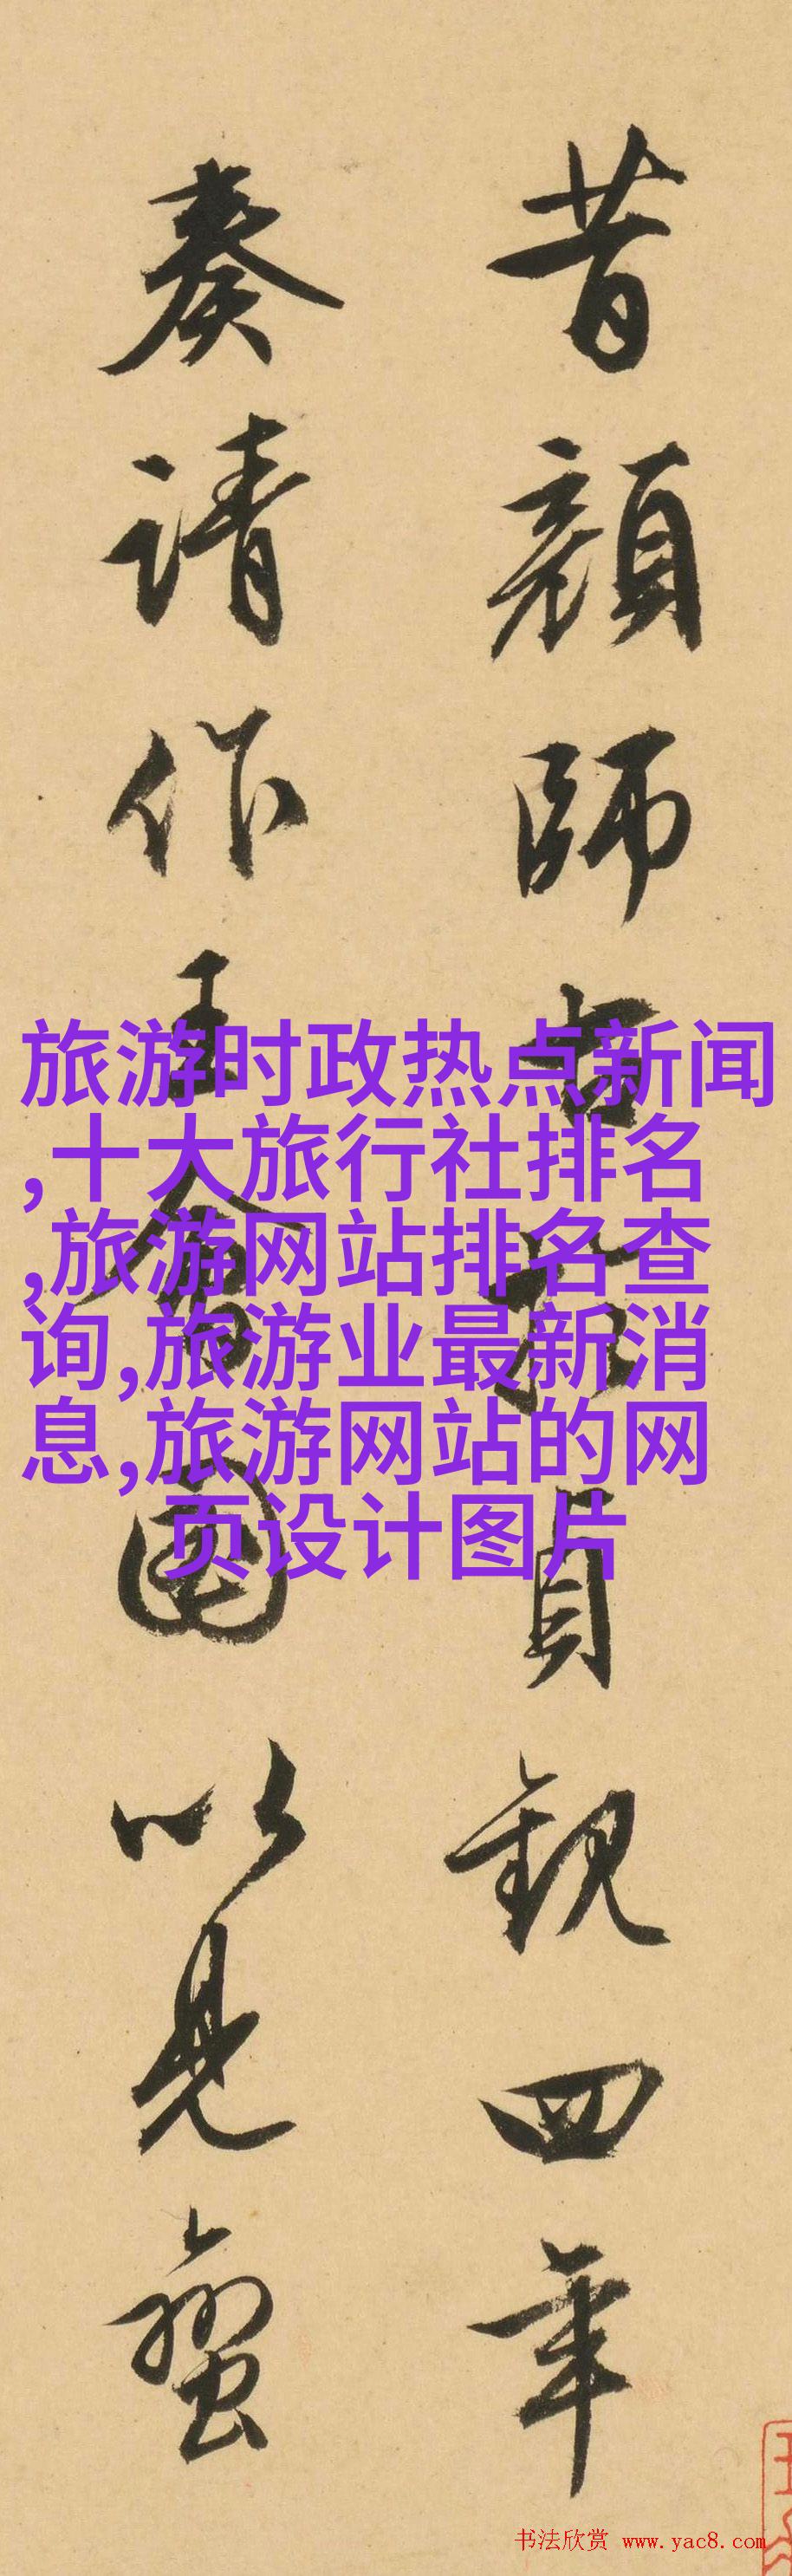 昔顏師古於貞觀四年
奏請作王會圖以見蠻
旅游时政热点新闻
,十大旅行社排名
,旅游网站排名查
询,旅游业最新消
息,旅游网站的网
页设计图片
书法欣赏 www.yac8.com